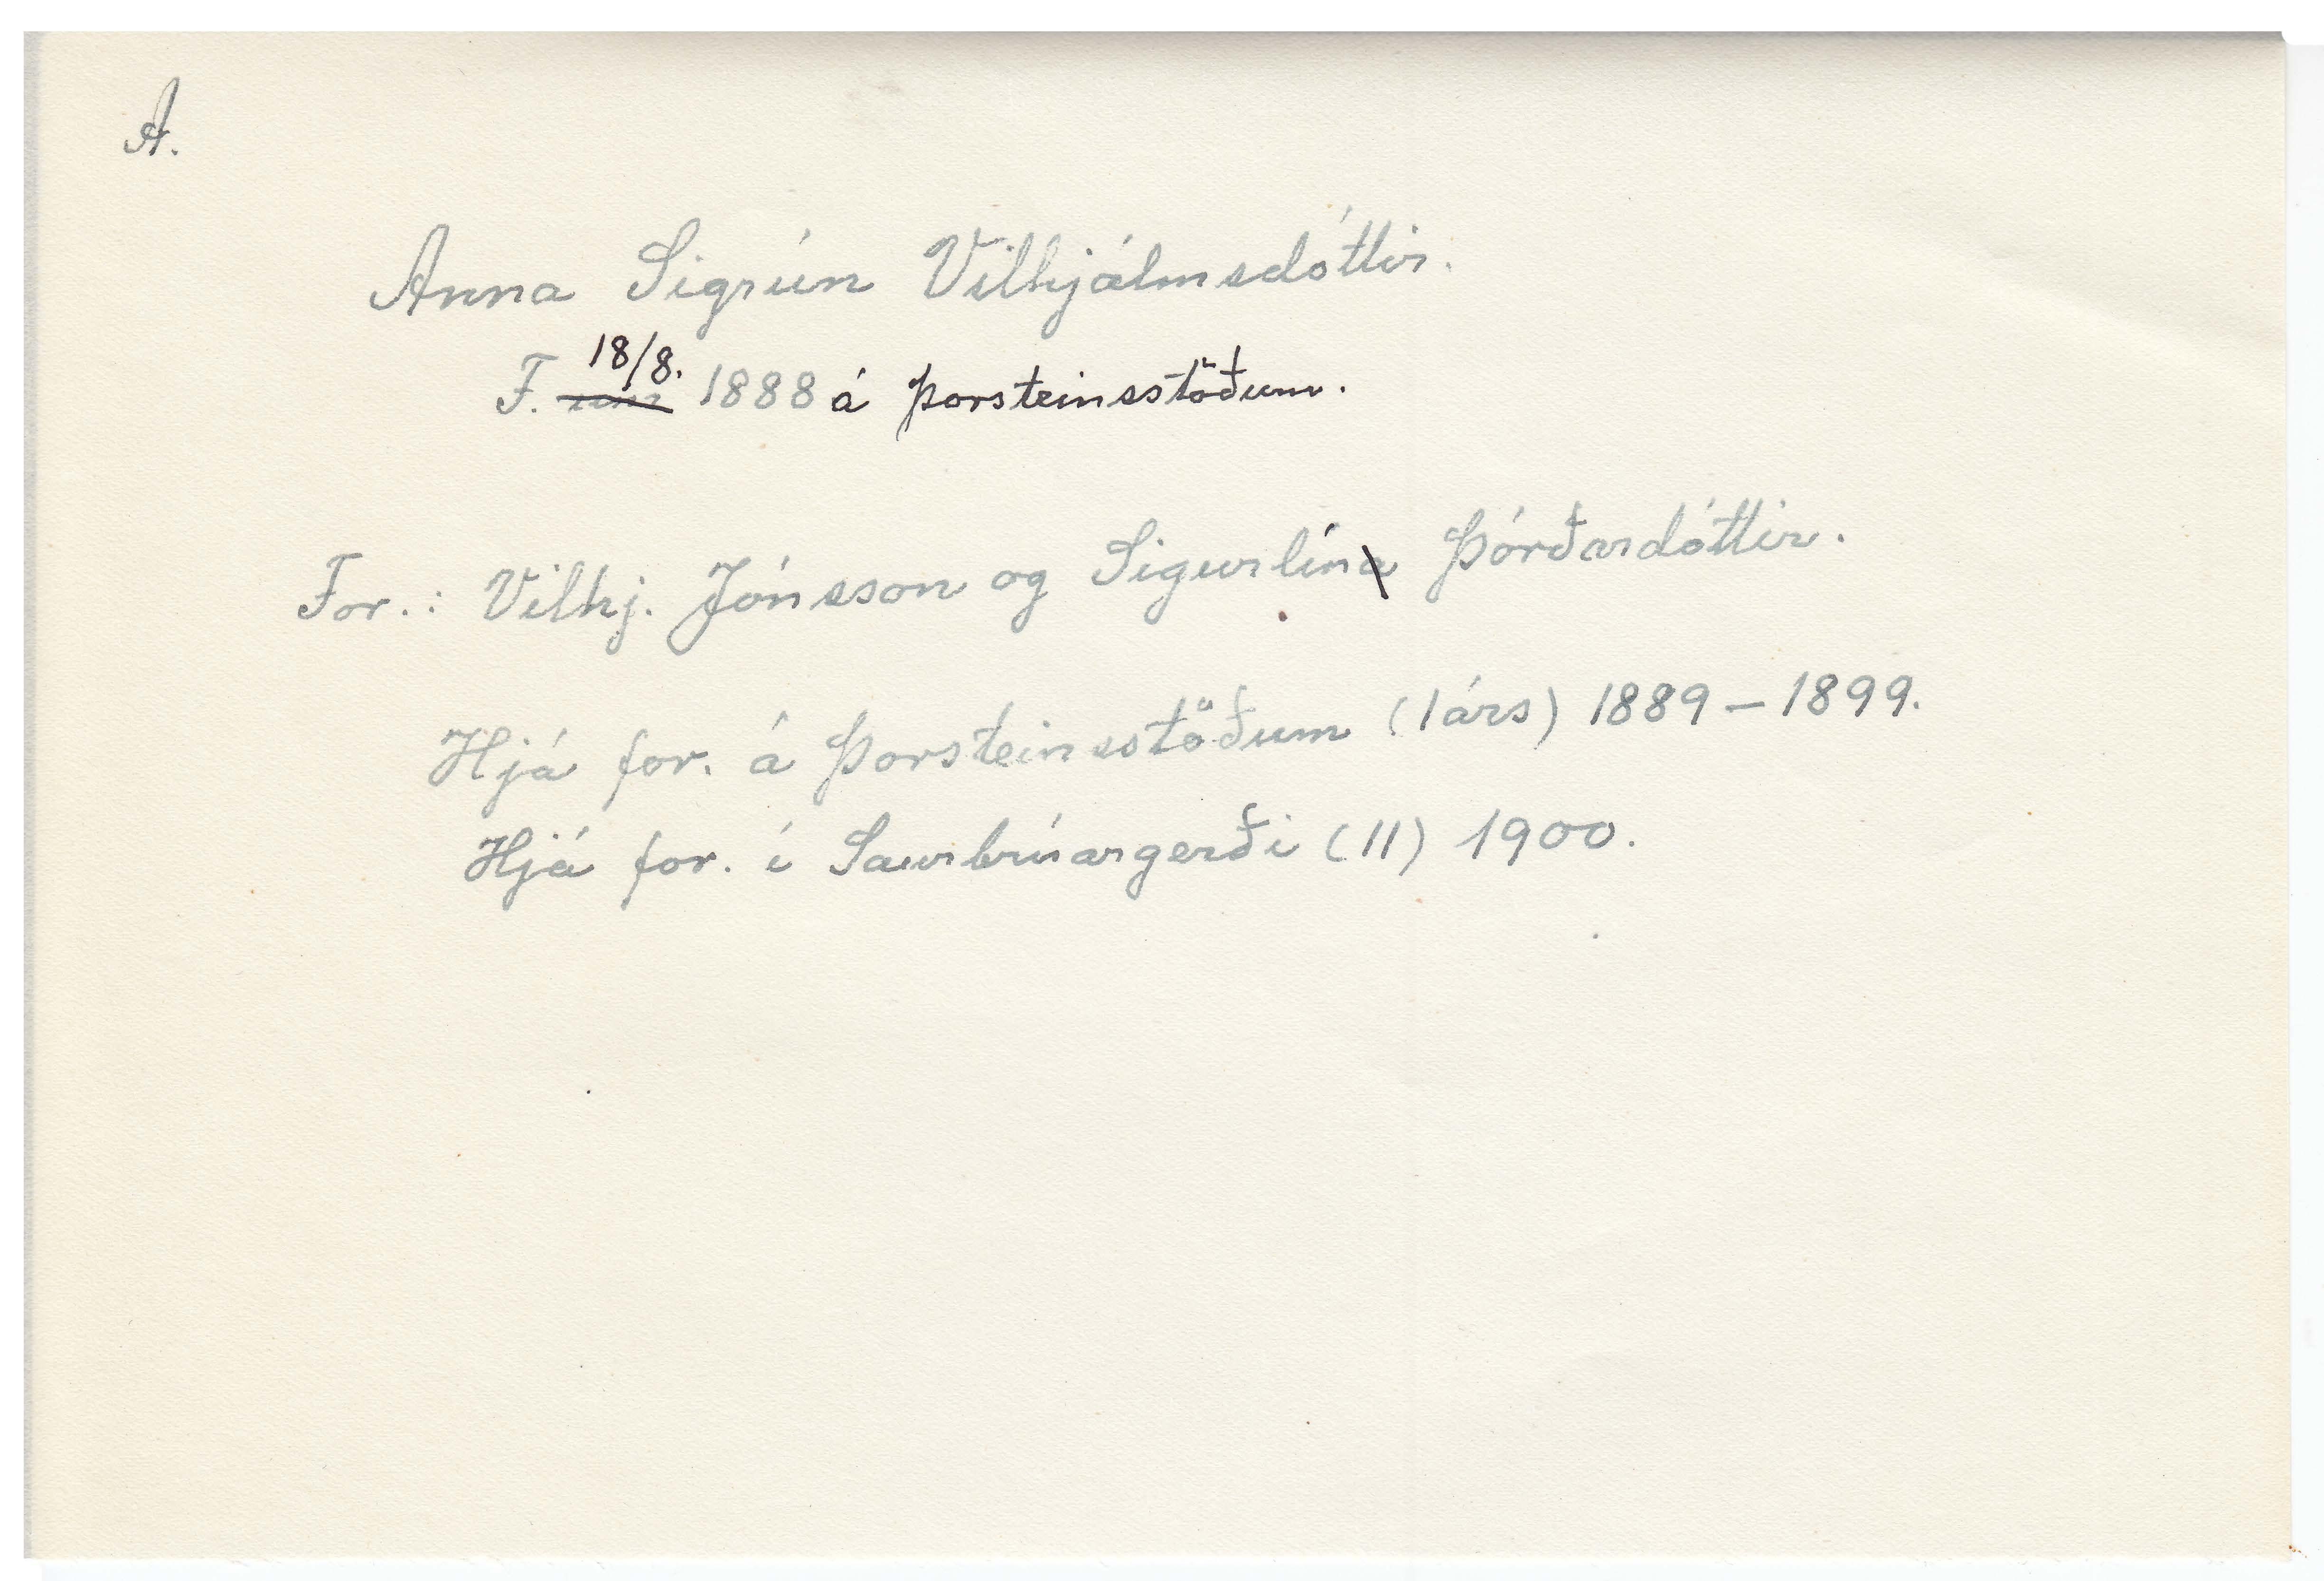 A.
Anna Sigrún Vilhjálmsdóttir.
F. 18/8. 1888 á Þorsteinsstöðum.
For.: Vilhj. Jónsson og Sigurlín Þórðardóttir.
Hjá for. á Þorsteinsstöðum (1 árs) 1889 – 1899.
Hjá for. í Saurbrúargerði (11) 1900.